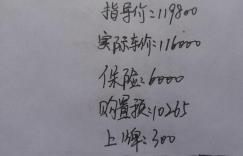 指导价:119800
实际车价:116000
保险:6000
购置税:10265
上牌:300